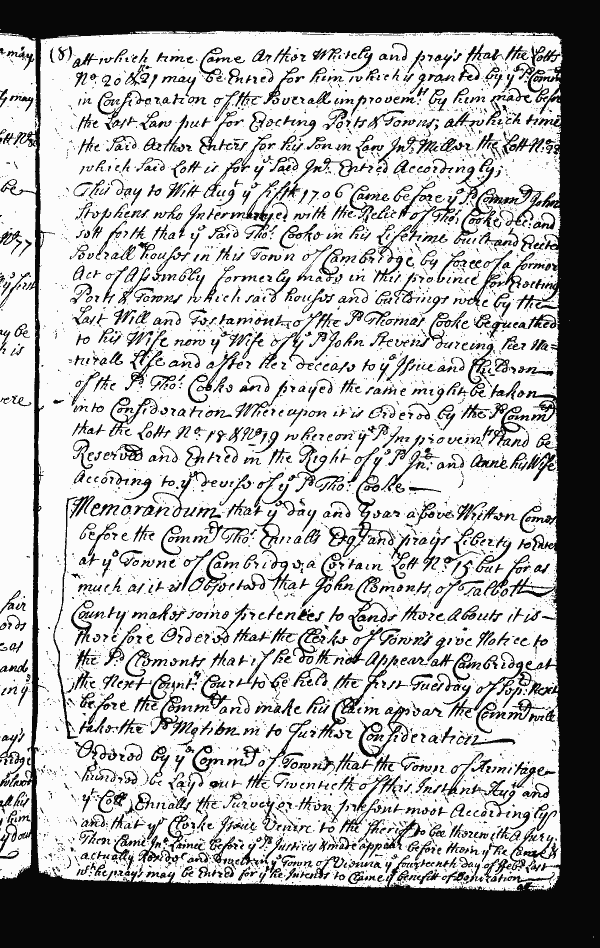 (8) att which time Came Arthor Whitely and prays that the Lotts
No. 20 & 21 may be Entred for him which is granted by ye Sd. Commrs
in Consideration of the Severall improvemts. by him made before
the Last Law put for Erecting Ports & Towns; att which time
the Said Arthor Enters for his Son in Law Jno. Miller the Lott No.
which Said Lott is for ye Said Jno. Entred Accordingly;
This day to Witt Augt. ye fifth 1706 Came before ye Sd. Commrs John
Stephens who Intermarryed with the Relict of Tho: Cooke decd. and
sett forth that ye Said Tho: Cooke in his Lifetime built and Erected
Severall houses in this Town of Cambridge by force of a former
Act of Assembly formerly made in this province for Erecting
Ports & Towns which said houses and buildings were by the
Last Will and Testament of the Sd. Thomas Cooke bequeathed
to his Wife now ye Wife of ye Sd. John Stevens dureing her Na=
turall Life and after her decease to ye Issue and Children
of the Sd. Tho: Cooke and prayed the same might be taken
into Consideration Whereupon it is Ordered by the Sd. Commrs
that the Lotts No. 18 & No 19 whereon ye Sd. Improvemts Stand be
Reserved and Entred in the Right of ye Sd. Jno: and Anne his Wife
According to ye devise of ye Sd. Tho: Cooke
Memorandum that ye day and Year above Written Comes
before the Commrs Tho: Ennalls Esqr. and prays Liberty to Enter
at ye Towne of Cambridge a Certain Lott No. 15 but for as
much as it is Observed that John Clements of Talbott
County makes some pretences to Lands there Abouts it is
therefore Ordered that the Clerke of Towns give Notice to
the Sd. Clements that if he doth not Appear att Cambridge at
the Next Count. Court to be held the first Tuesday of Sepr. Next
before the Commrs and make his Claim appear the Commrs will
take the Sd. Motion in to further Consideration
Ordered by ye Commrs of Towns that the Town of Armitage
hundred be Layd out the Twentieth of this Instant Augt. and
ye Coll. Ennalls the Surveyor then present moot Accordingly
and that ye Clerke Issue Venire to the Sherif to be there with a Jury.
Then Came Jno. Lamee before ye Sd. Justices & made appear before them ye he Came &
actually and in ye Town of Vienna ye fourteenth day of Feb. Last
wch. he prays may be Entred for ye he Intends to Clame ye benefitt of
att